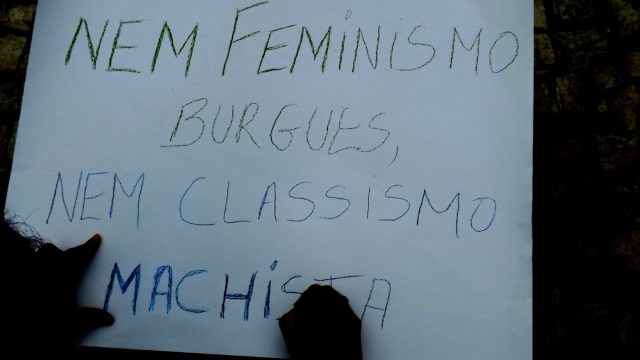 NEM FEMINISMO
BURGUES,
NEM CLASSISMO
MACHISTA